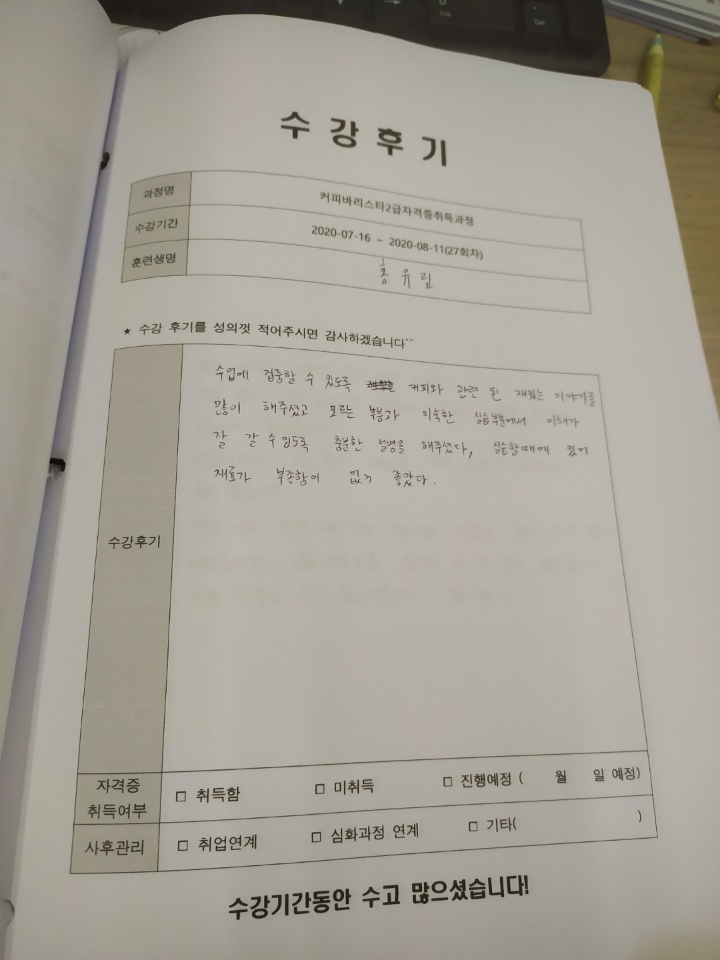 수강후기
과정명 커피바리스타2급자격증취득과정
수강기간 2020-07-16 ~ 2020-08-11(27회차)
훈련생명 홍유림
★ 수강 후기를 성의껏 적어주시면 감사하겠습니다^^
수강후기
수업에 집중할 수 있도록 커피와 관련 된 재밌는 이야기를
많이 해주셨고 모르는 부분과 미숙한 실습부분에서 이해가
잘 갈 수 있도록 충분한 설명을 해주셨다, 실습할때에 있어
재료가 부족함이 없어 좋았다.
자격증 취득여부 □ 취득함 □ 미취득 □ 진행예정 ( 월 일 예정)
사후관리 □ 취업연계 □ 심화과정 연계 □ 기타( )
수강기간동안 수고 많으셨습니다!